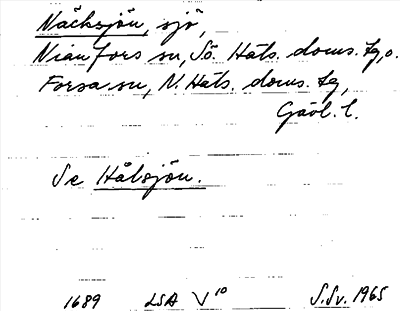 Näcksjön, sjö,
Nianfors sn, Sö. Häls. doms. tg, o.
Forsa sn, N. Häls. doms. tg,
Gävl. l.
Se Hålsjön.
1689 LSA V 10 S.Sv. 1965